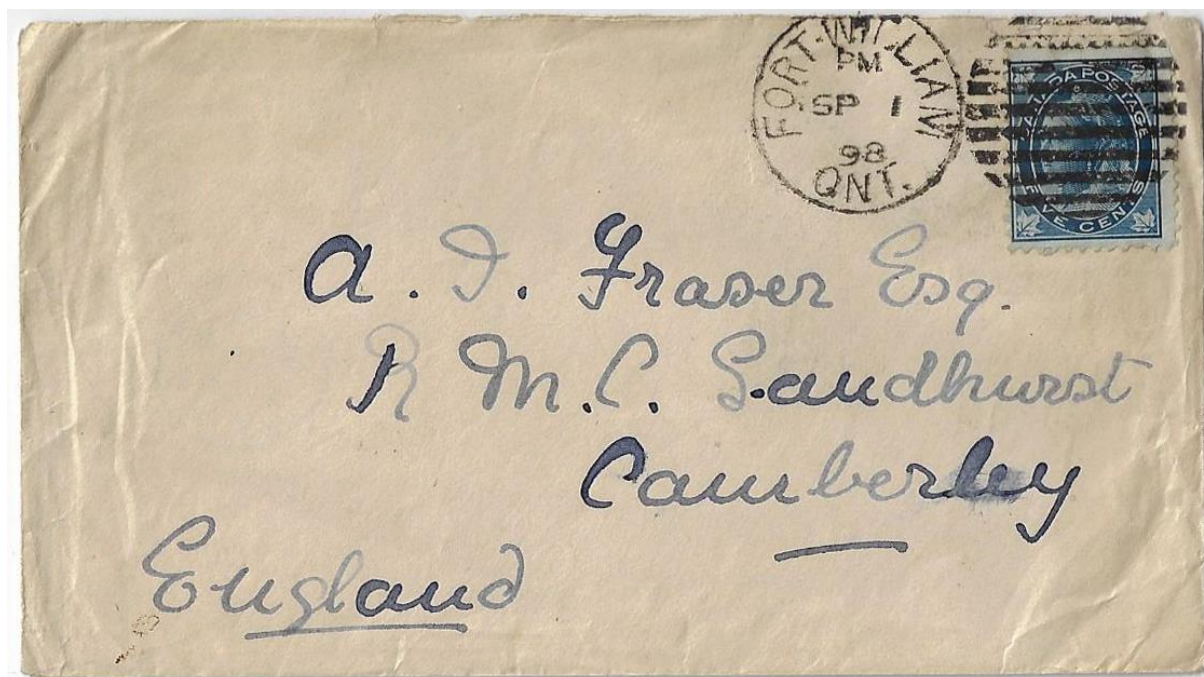 FORT-WILLIAM
PM
SP 1
98
ONT.
CANADA POSTAGE
FIVE CENTS
A. I. Fraser Esq.
R M.C. Sandhurst
Camberley
England